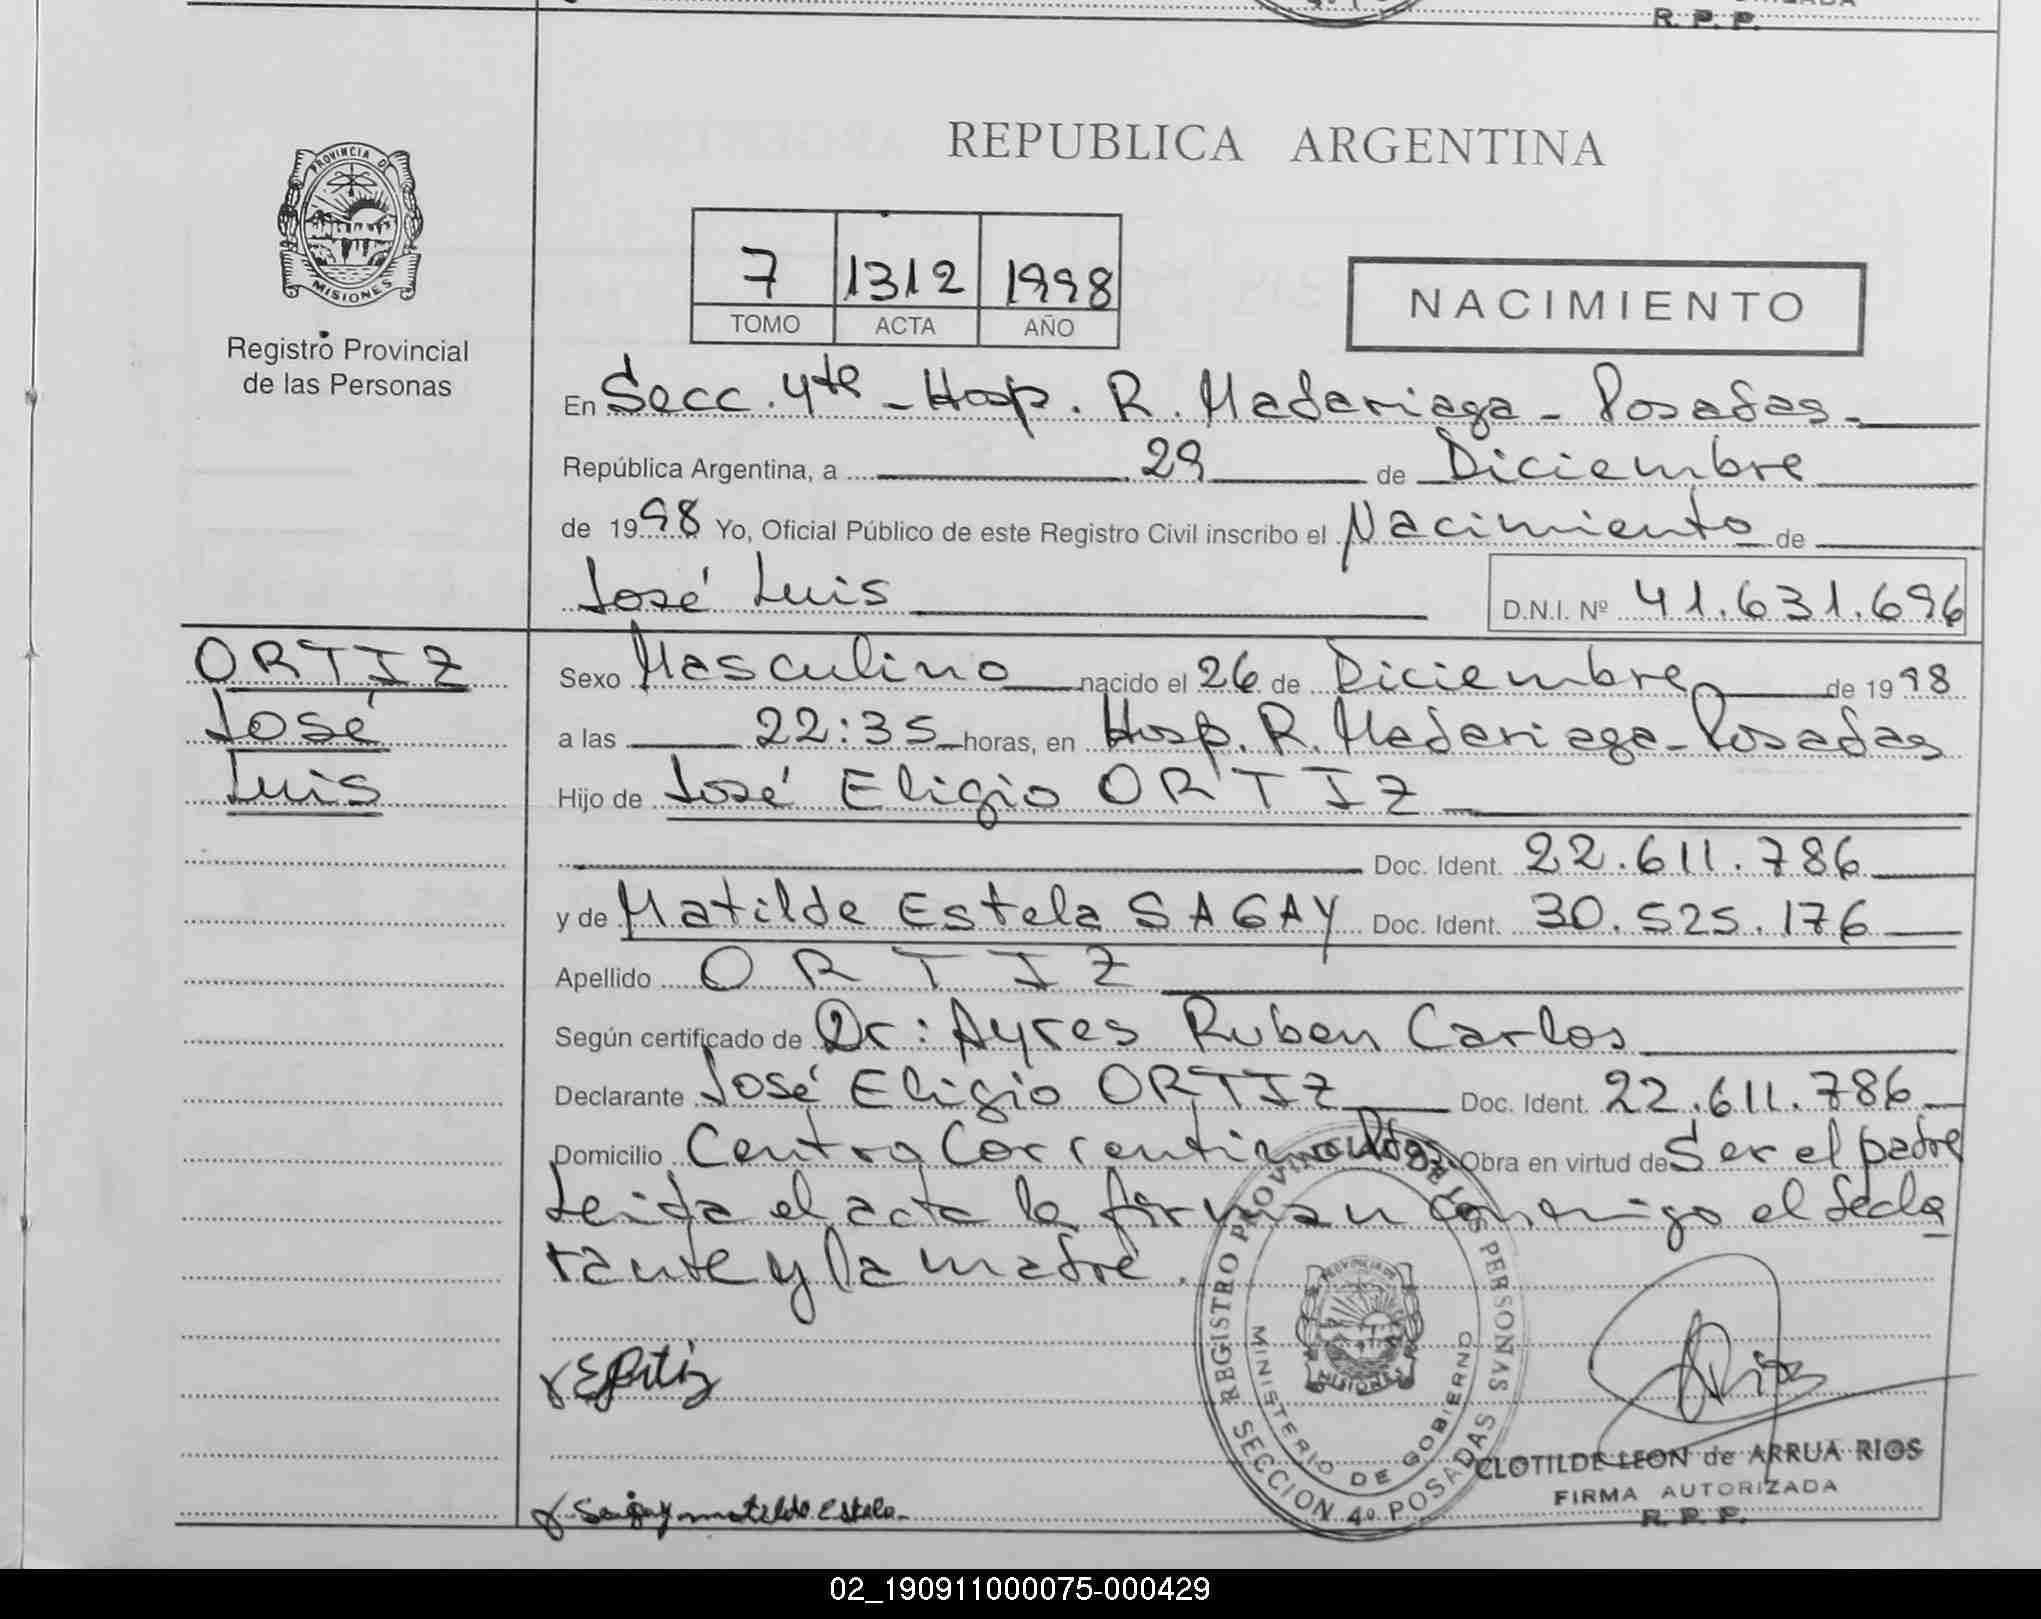 R. P. P.
REPUBLICA ARGENTINA
PROVINCIA D
MISIONES
Registro Provincial
de las Personas
7 1312 1998
TOMO ACTA AÑO
NACIMIENTO
En Secc. 4ta - Hosp. R. Madariaga - Posadas -
República Argentina, a 29 de Diciembre
de 1998 Yo, Oficial Público de este Registro Civil inscribo el Nacimiento de
José Luis D.N.I. Nº 41.631.696
ORTIZ
José
Luis
Sexo Masculino nacido el 26 de Diciembre de 1998
a las 22:35 horas, en Hosp. R. Madariaga - Posadas
Hijo de José Eligio ORTIZ
Doc. Ident. 22.611.786
y de Matilde Estela SAGAY Doc. Ident. 30.525.176
Apellido ORTIZ
Según certificado de Dr: Ayres Ruben Carlos
Declarante José Eligio ORTIZ Doc. Ident. 22.611.786
Domicilio Centro Correntino Obra en virtud de Ser el padre
Leida el acta la firman conmigo el decla
rante y la madre.
REGISTRO PROVINCIAL DE LAS PERSONAS
MINISTERIO DE GOBIERNO
SECCION 4º POSADAS
MISIONES
E Ortiz
Rios
CLOTILDE LEON de ARRUA RIOS
FIRMA AUTORIZADA
R. P. P.
Sagay matilde Estela
02_190911000075-000429